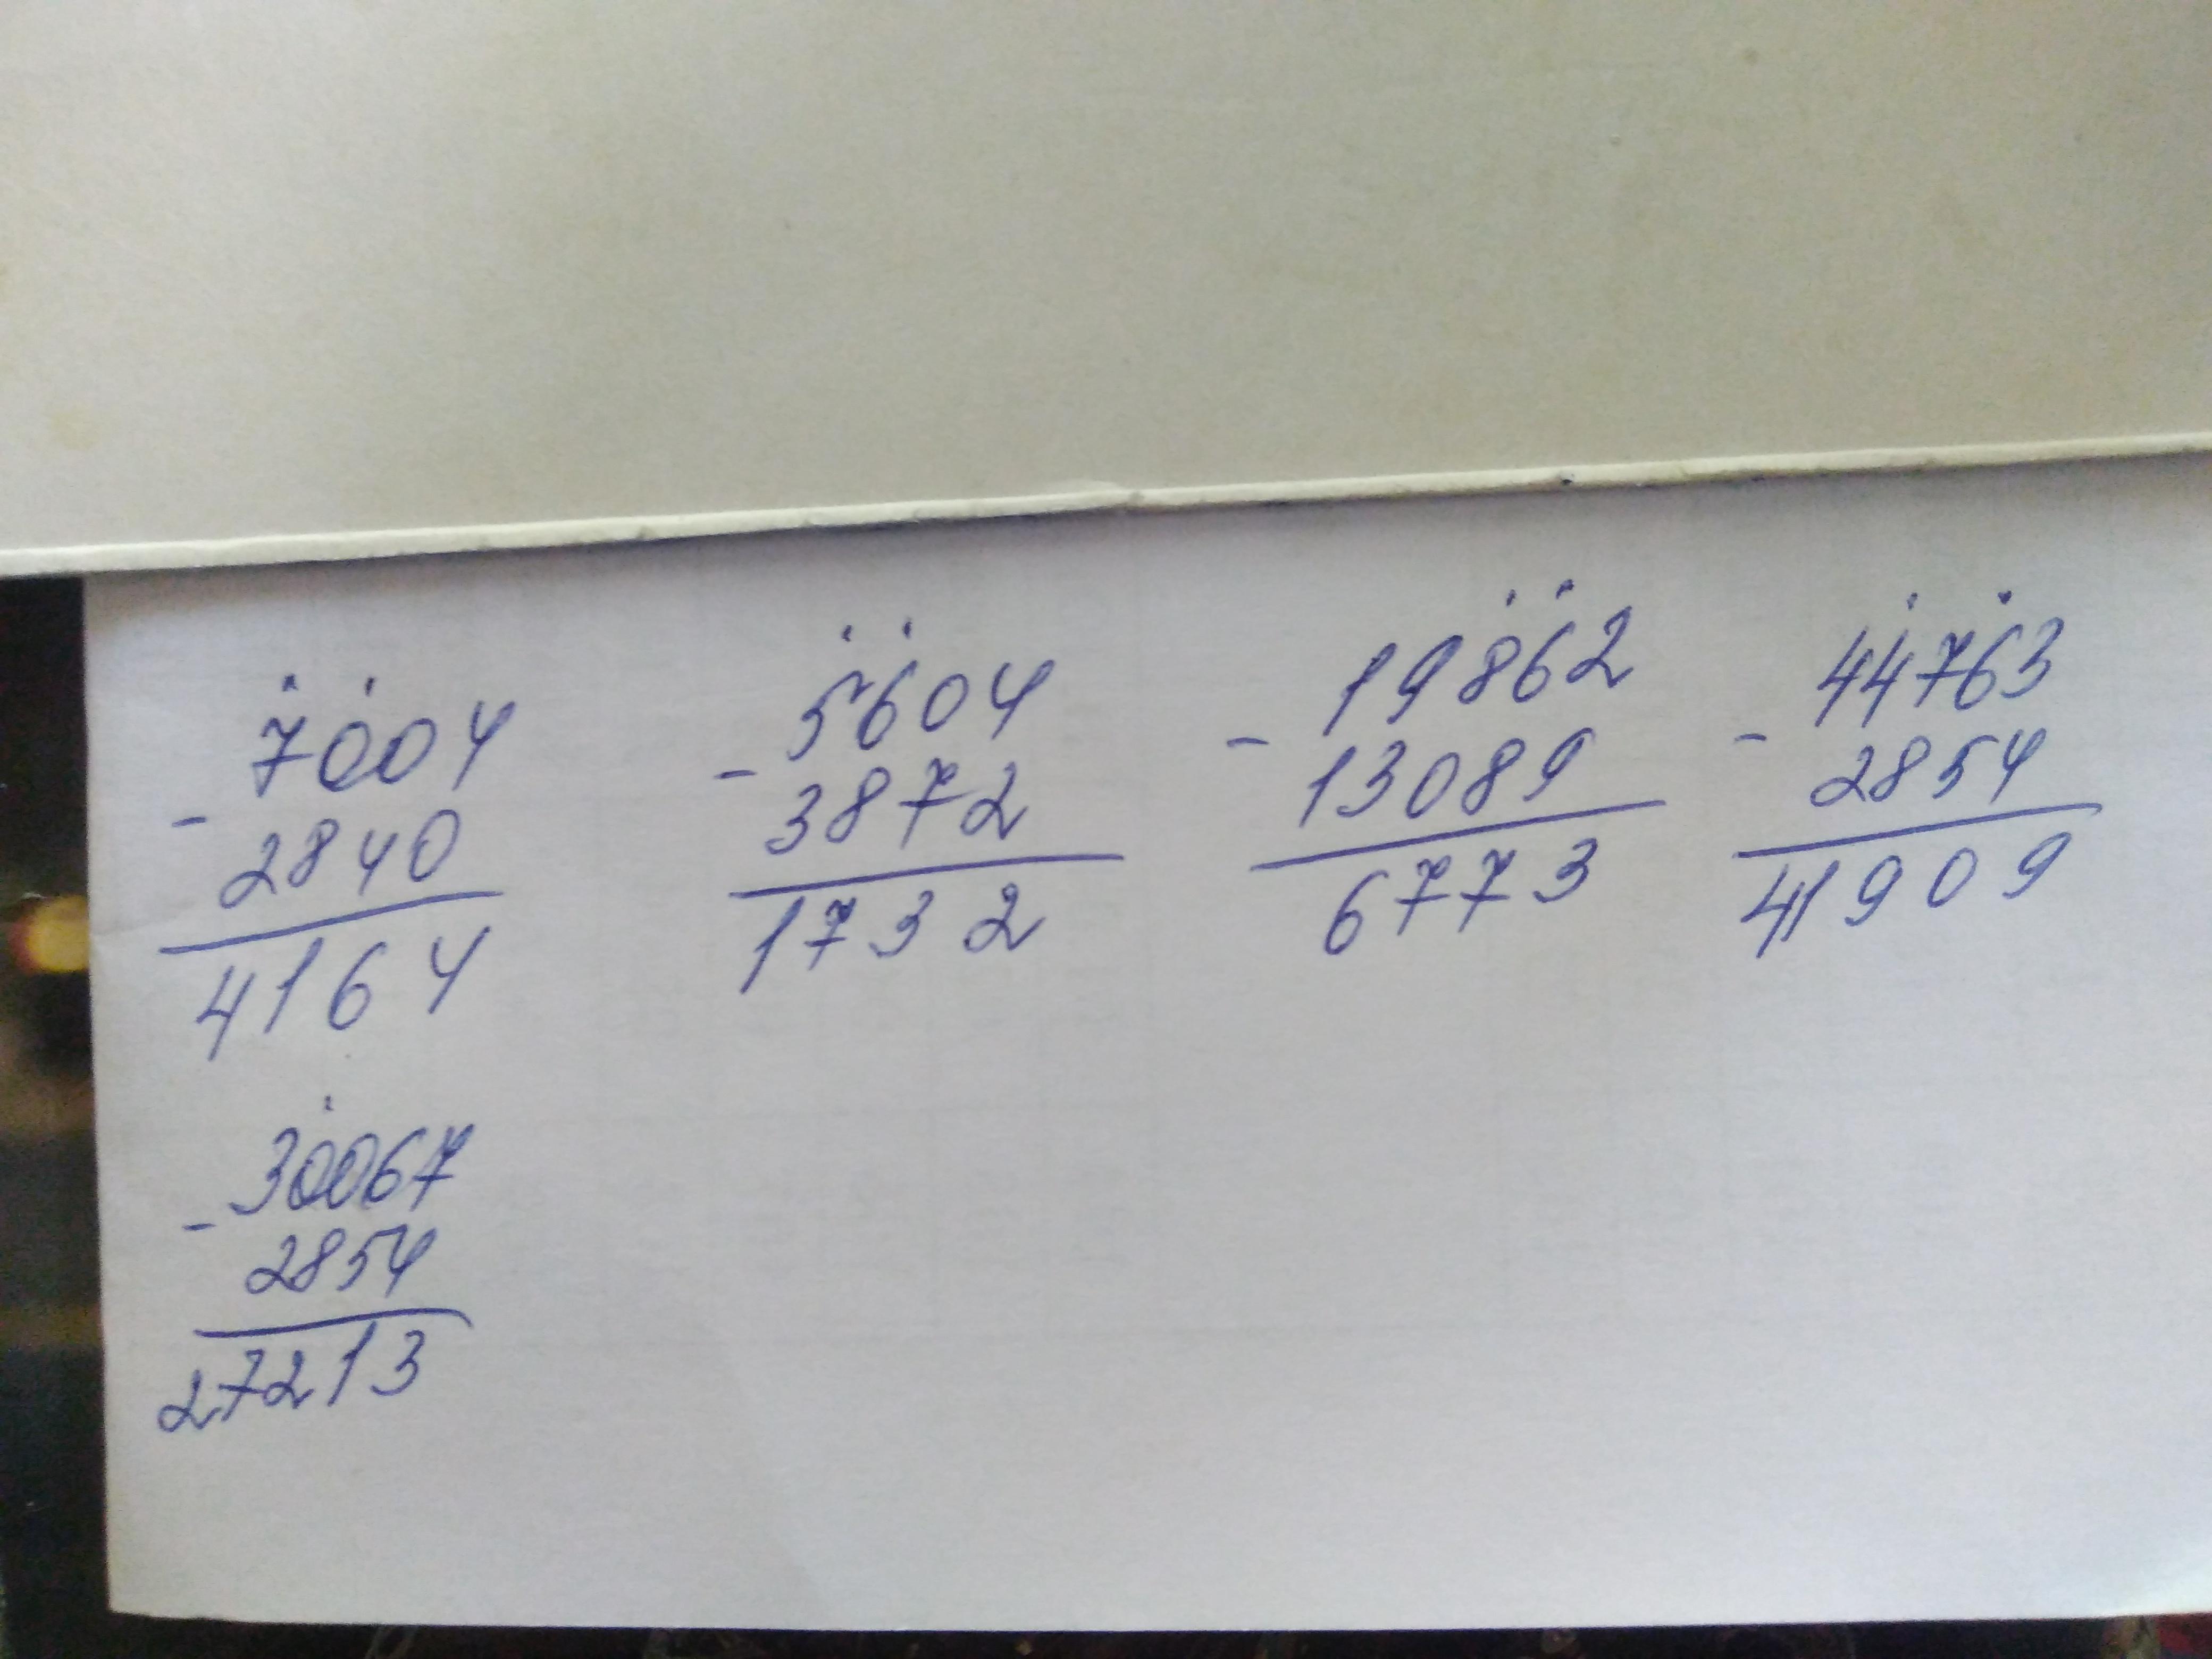 7004
- 2840
4164
5604
- 3872
1732
19862
- 13089
6773
44763
- 2854
41909
30067
- 2854
27213